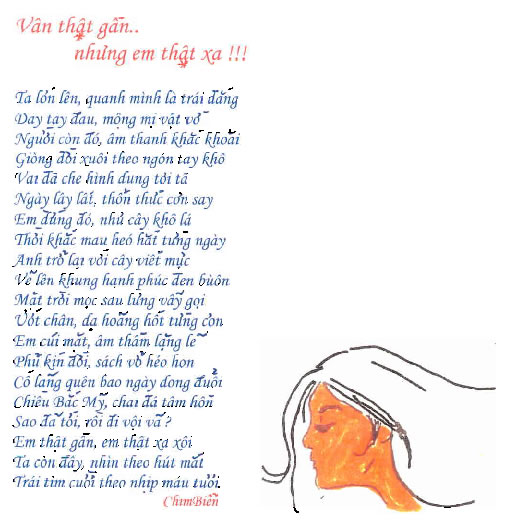 Vẫn thật gần..
nhưng em thật xa !!!
Ta lớn lên, quanh mình là trái đắng
Day tay đau, mộng mị vật vờ
Người còn đó, âm thanh khắc khoải
Giòng đời xuôi theo ngón tay khô
Vai đã che hình dung tơi tả
Ngày lây lất, thổn thức cơn say
Em đứng đó, như cây khô lá
Thời khắc mau heó hắt từng ngày
Anh trở lại với cây viết mực
Vẽ lên khung hạnh phúc đen buồn
Mặt trời mọc sau lưng vẫy gọi
Ướt chân, da hoảng hốt từng cơn
Em cúi mặt, âm thầm lặng lẽ
Phủ kín đời, sách vở héo hon
Cố lãng quên bao ngày dong đuổi
Chiều Bắc Mỹ, chai đá tâm hồn
Sao đã tới, rồi đi vội vã ?
Em thật gần, em thật xa xôi
Ta còn đây, nhìn theo hút mắt
Trái tim cười theo nhịp máu tươi.
ChimBiển